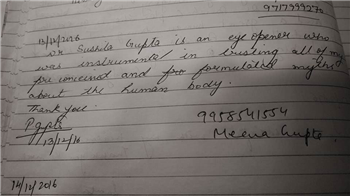 9717999270
13/12/2016
Dr Sushila Gupta is an eye opener who
was instrumental in busting all of my
preconceived and for formulated myths
about the human body.
Thank you.
Pgupta
13/12/16
9958541554
Meena Gupta
14/12/2016